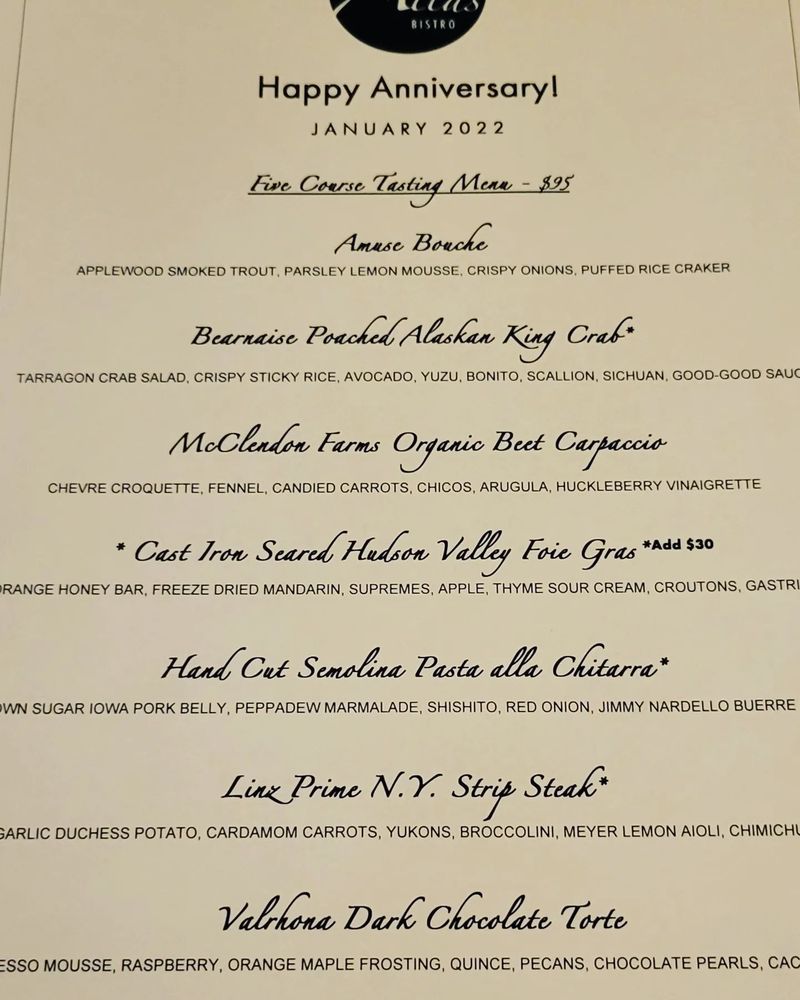 BISTRO
Happy Anniversary!
JANUARY 2022
Five Course Tasting Menu - $95
Amuse Bouche
APPLEWOOD SMOKED TROUT, PARSLEY LEMON MOUSSE, CRISPY ONIONS, PUFFED RICE CRAKER
Bearnaise Poached Alaskan King Crab*
TARRAGON CRAB SALAD, CRISPY STICKY RICE, AVOCADO, YUZU, BONITO, SCALLION, SICHUAN, GOOD-GOOD
McClendon Farms Organic Beet Carpaccio
CHEVRE CROQUETTE, FENNEL, CANDIED CARROTS, CHICOS, ARUGULA, HUCKLEBERRY VINAIGRETTE
* Cast Iron Seared Hudson Valley Foie Gras *Add $30
HONEY BAR, FREEZE DRIED MANDARIN, SUPREMES, APPLE, THYME SOUR CREAM, CROUTONS,
Hand Cut Semolina Pasta alla Chitarra*
SUGAR IOWA PORK BELLY, PEPPADEW MARMALADE, SHISHITO, RED ONION, JIMMY NARDELLO BUERRE
Linz Prime N.Y. Strip Steak*
GARLIC DUCHESS POTATO, CARDAMOM CARROTS, YUKONS, BROCCOLINI, MEYER LEMON AIOLI,
Valrhona Dark Chocolate Torte
MOUSSE, RASPBERRY, ORANGE MAPLE FROSTING, QUINCE, PECANS, CHOCOLATE PEARLS,